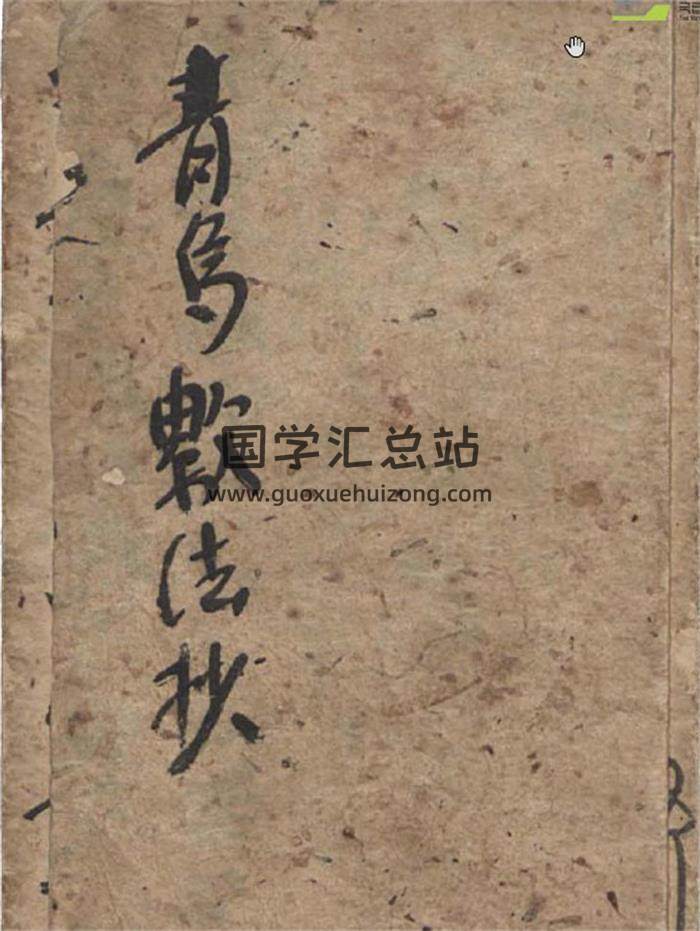 青烏數法抄
国学汇总站
www.guoxuehuizong.com